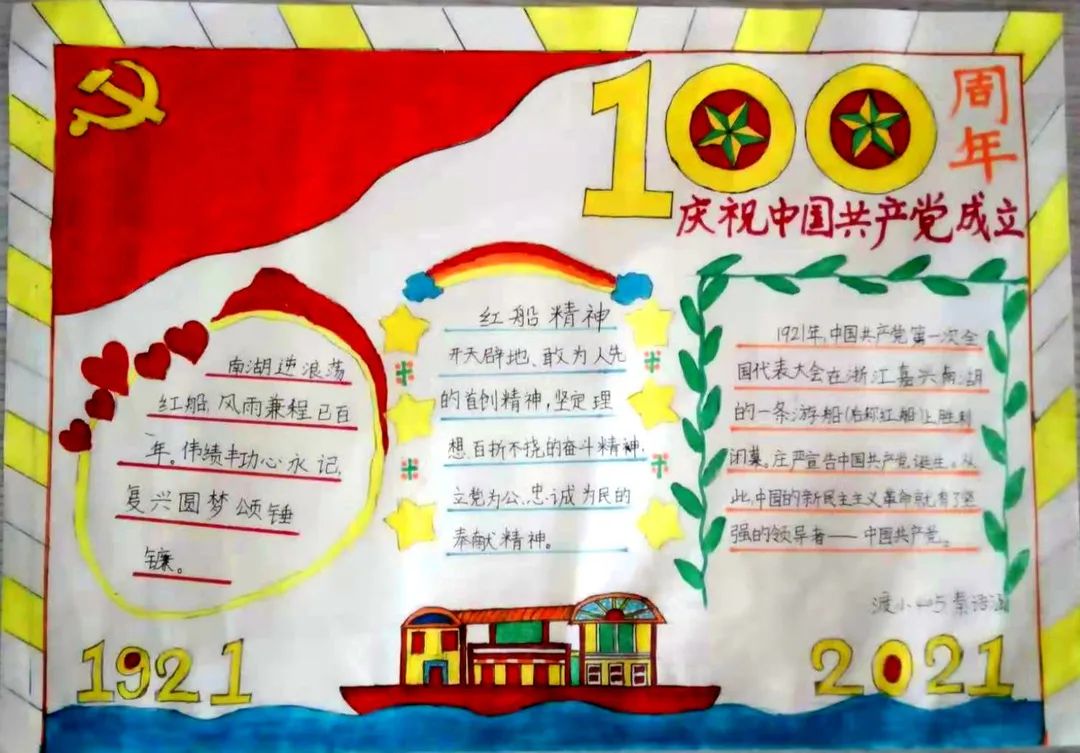 100周年
庆祝中国共产党成立
南湖逆浪荡
红船,风雨兼程已百
年。伟绩丰功心永记,
复兴圆梦颂锤
镰。
红船精神
开天辟地、敢为人先
的首创精神,坚定理
想、百折不挠的奋斗精神,
立党为公、忠诚为民的
奉献精神。
1921年,中国共产党第一次全
国代表大会在浙江嘉兴南湖
的一条游船(后称红船)上胜利
闭幕。庄严宣告中国共产党诞生。从
此,中国的新民主主义革命就有了坚
强的领导者——中国共产党。
渡小 秦语涵
1921
2021